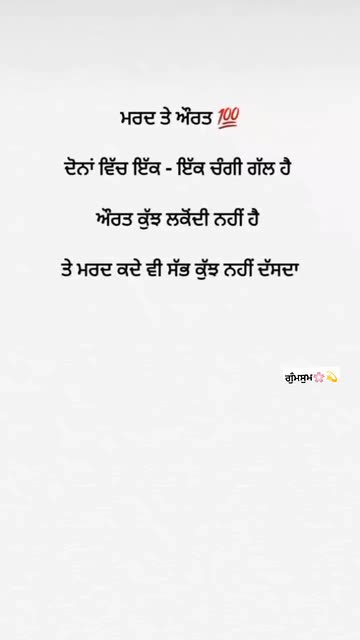 ਮਰਦ ਤੇ ਔਰਤ 💯
ਦੋਨਾਂ ਵਿੱਚ ਇੱਕ - ਇੱਕ ਚੰਗੀ ਗੱਲ ਹੈ
ਔਰਤ ਕੁੱਝ ਲਕੋਂਦੀ ਨਹੀਂ ਹੈ
ਤੇ ਮਰਦ ਕਦੇ ਵੀ ਸੱਭ ਕੁੱਝ ਨਹੀਂ ਦੱਸਦਾ
ਗੁੰਮਸੁਮ🌸💫